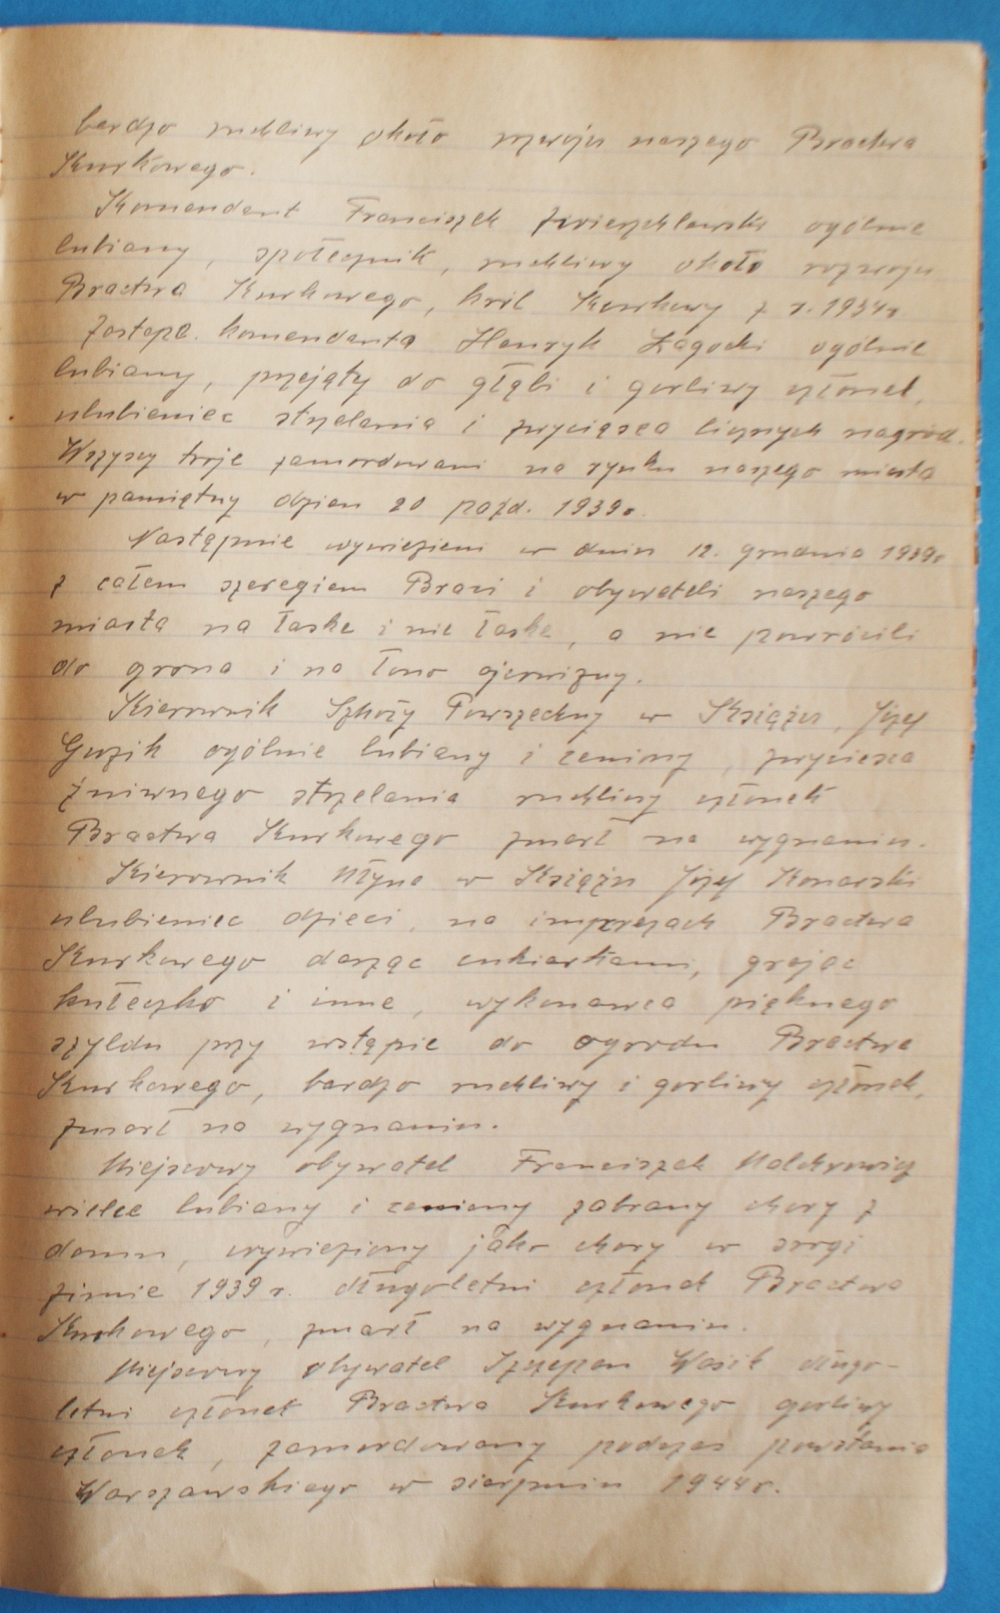 bardzo ruchliwy około rozwoju naszego Bractwa
Kurkowego.
Komendant Franciszek Zwierzchlewski ogólnie
lubiany, społecznik, ruchliwy około rozwoju
Bractwa Kurkowego, król Kurkowy z r. 1934r
Zastęp. komendanta Henryk Łagocki ogólnie
lubiany, przejęty do głębi i gorliwy członek,
ulubieniec strzelania i zwycięsca licznych nagród.
Wszyscy troje zamordowani na rynku naszego miasta
w pamiętny dzien 20 pazd. 1939r.
Następnie wywiezieni w dniu 12. grudnia 1939r
z całem szeregiem Braci i obywateli naszego
miasta na łaske i nie łaske, a nie powrócili
do grona i na łono ojcowizny.
Kierownik Szkoły Powszechny w Książu, Józef
Guzik ogólnie lubiany i ceniony, zwyciesca
żniwnego strzelania ruchliwy członek
Bractwa Kurkowego zmarł na wygnaniu.
Kierownik Młyna w Książu Józef Konarski
ulubieniec dzieci, na imprezach Bractwa
Kurkowego darząc cukierkami, grając
kułeczko i inne, wykonawca pięknego
szyldu przy wstąpie do ogrodu Bractwa
Kurkowego, bardzo ruchliwy i gorliwy członek,
zmarł na wygnaniu.
Miejscowy obywatel Franciszek Malchrowicz
wielce lubiany i ceniony zabrany chory z
domu, wywieziony jako chory w srogi
zimie 1939 r. długoletni członek Bractwa
Kurkowego, zmarł na wygnaniu.
Miejscowy obywatel Szczepan Wosik długo-
letni członek Bractwa Kurkowego gorliwy
członek, zamordowany podczas powstania
Warszawskiego w sierpniu 1944r.